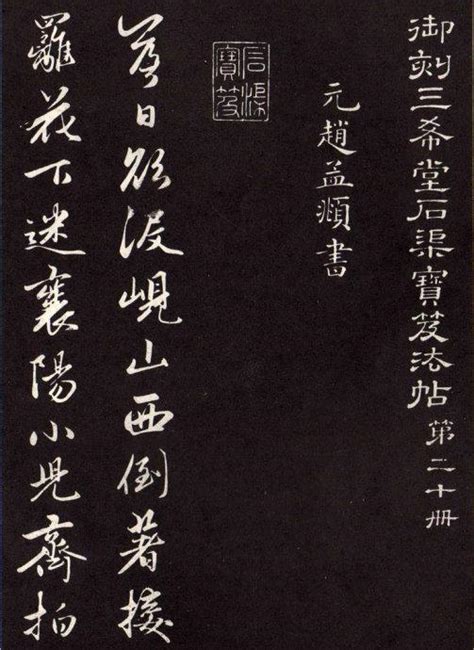 御刻三希堂石渠寶笈法帖第二十冊
元趙孟頫書
石渠寶笈
落日欲沒峴山西倒著接
䍦花下迷襄陽小兒齊拍